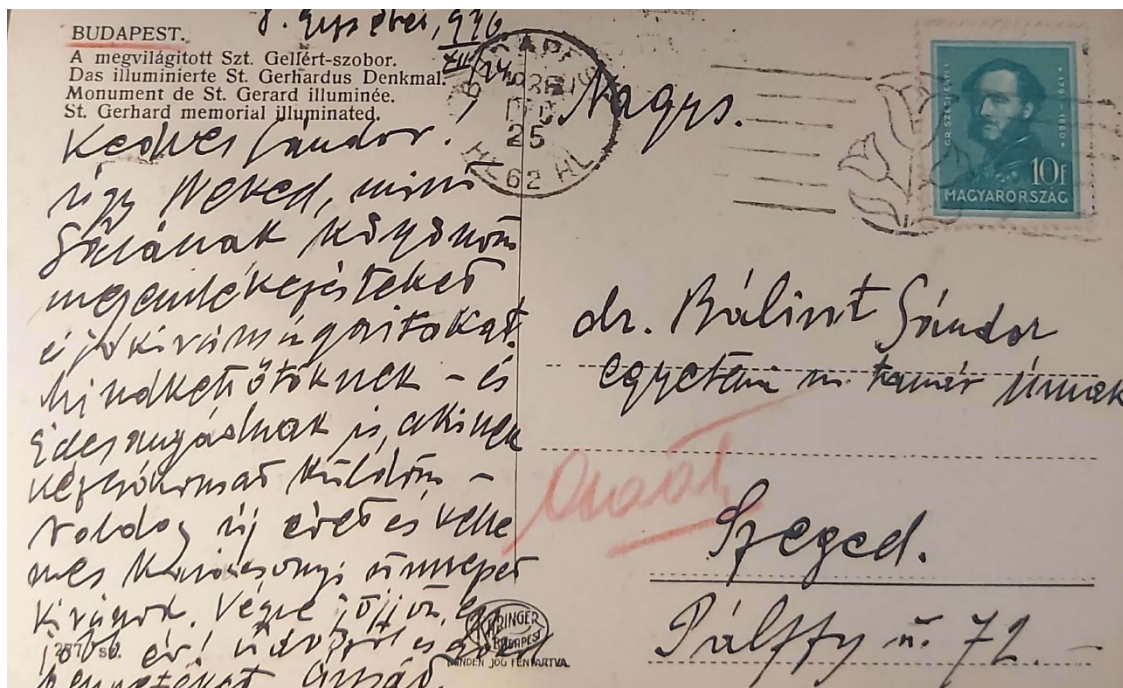 BUDAPEST.
A megvilágitott Szt. Gellért-szobor.
Das illuminierte St. Gerhardus Denkmal.
Monument de St. Gerard illuminée.
St. Gerhard memorial illuminated.
936
XII/24
Kedves Sándor!
úgy Neked, mint
Sárának köszönöm
megemlékezésteket
és jókívánságaitokat.
Mindkettőtöknek – és
Édesanyádnak is, akinek
kézcsókomat küldöm –
boldog új évet és kelle
mes karácsonyi ünnepet
kívánok. Végre jöjjön egy
jobb év! üdvözöl és ölel
benneteket
Nagys.
dr. Bálint Sándor
egyetemi m. tanár úrnak
Szeged.
Pálffy u. 72.
BUDAPEST
DEC
25
HL 62 HL
GR. SZÉCHENYI
1791-1860
10f
MAGYARORSZÁG
BUDAPEST
MINDEN JOG FENTARTVA.